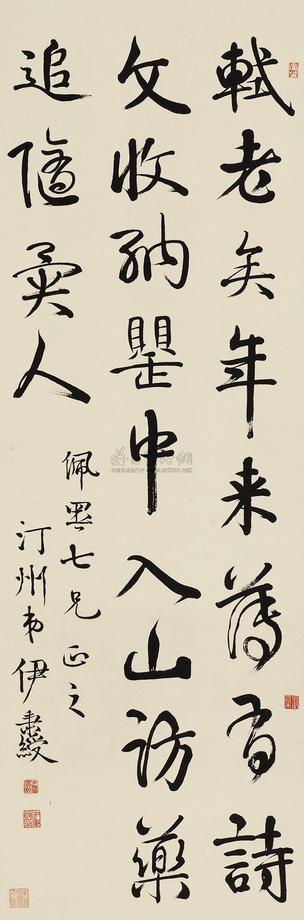 軾老矣年来薄有詩
文收納罌中入山訪藥
追隨異人
佩思七兄正之
汀州弟伊秉綬